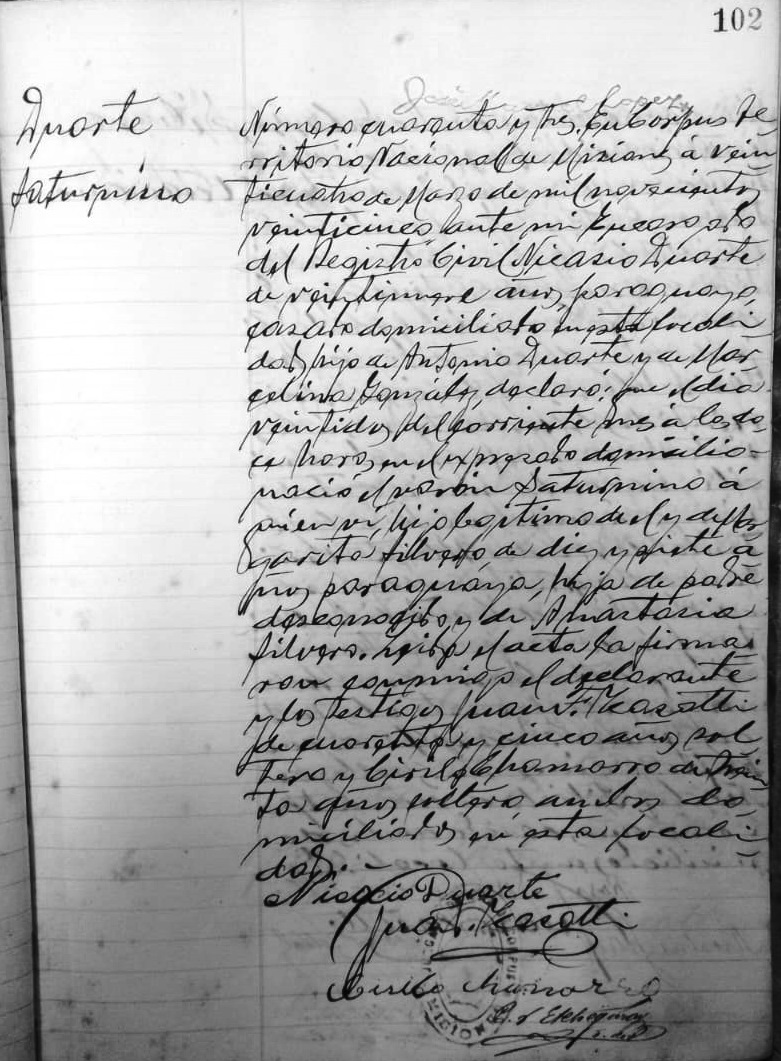 102
Duarte
Saturnino
Número cuarenta y tres. En Corpus Te
rritorio Nacional de Misiones a vein
ticuatro de Marzo de mil novecientos
veinticinco ante mi Encargado
del Registro Civil Nicasio Duarte
de veintinueve años, paraguayo,
casado domiciliado en esta locali
dad, hijo de Antonio Duarte y de Mar
celina González, declaró: que el dia
veintidos del corriente mes á las do
ce horas en el expresado domicilio
nació el varón Saturnino á
quien vi, hijo legitimo de el y de Mar
garita Silvero de diez y siete a
ños paraguaya, hija de padre
desconocido y de Anastacia
Silvero. Leida el acta la firma
ron conmigo el declarante
y los testigos Juan F.
de cuarenta y cinco años, sol
tero y Cirilo Chamorro de trein
ta años soltero ambos do
miciliados en esta locali
dad.
Nicacio Duarte
Juan F.